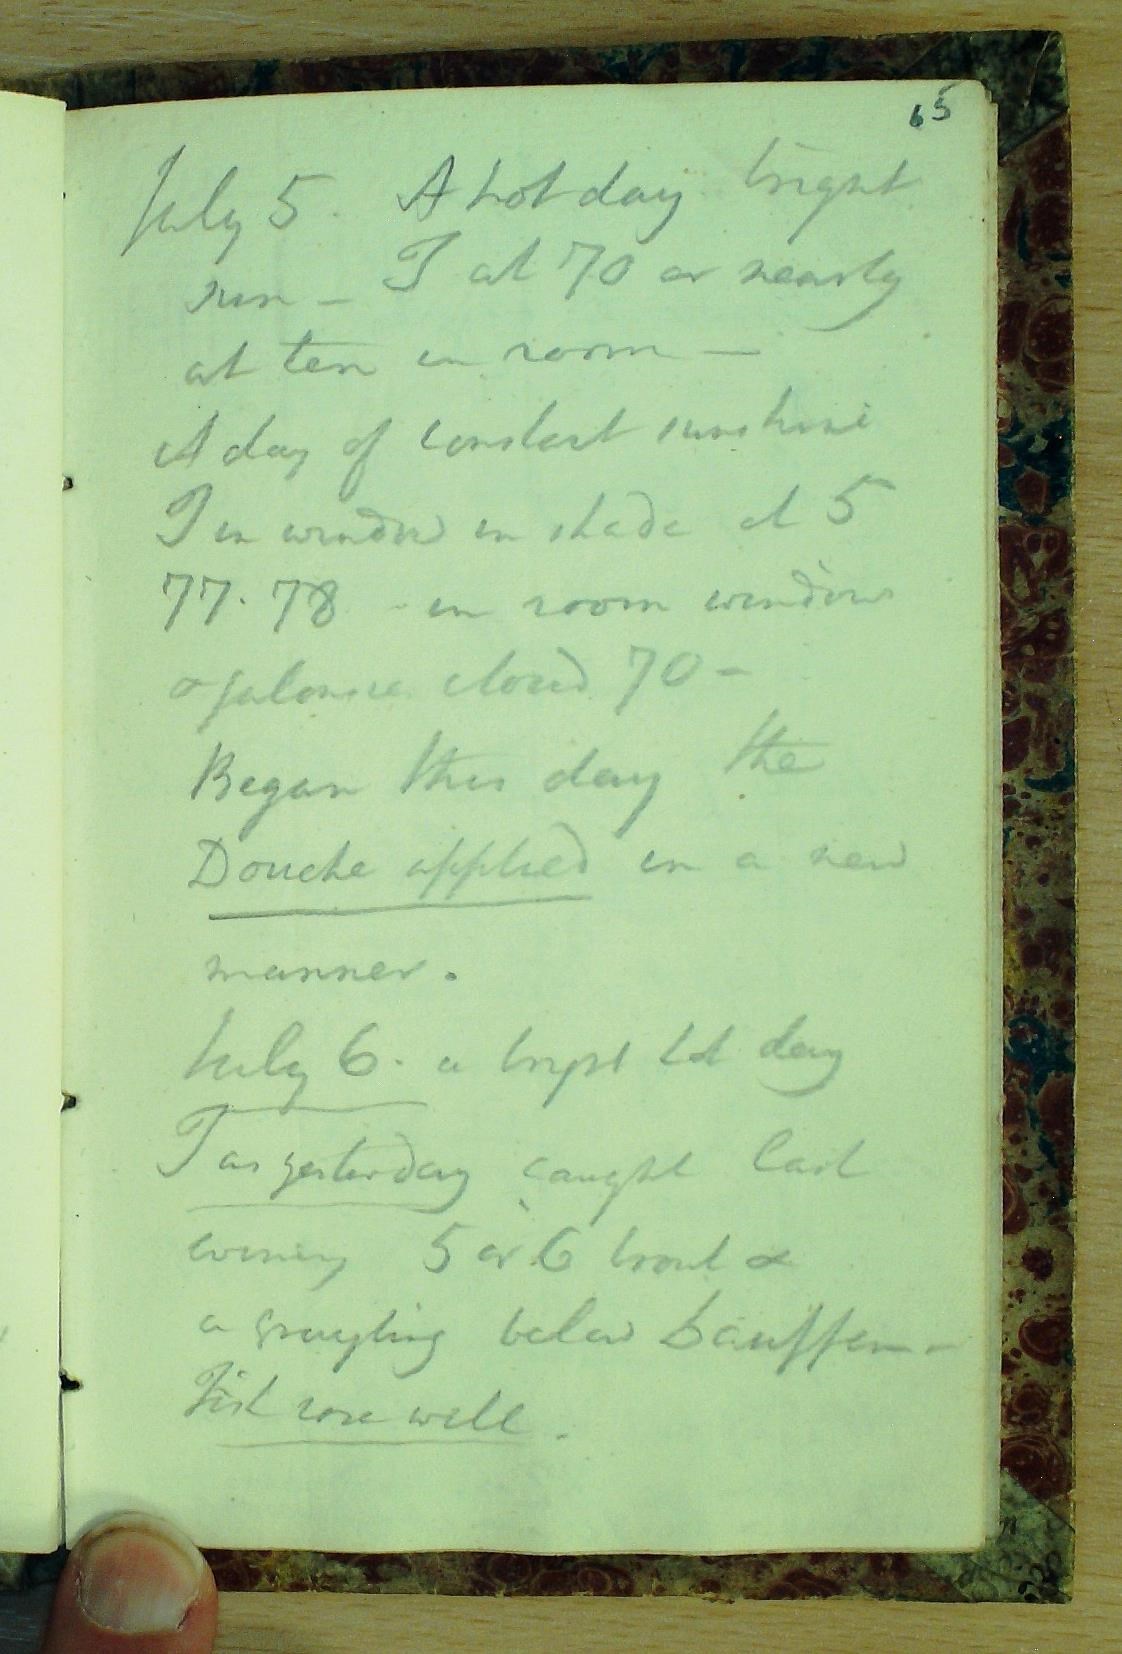 65
July 5. A hot day bright
sun - T at 70 or nearly
at ten in room -
A day of constant sunshine
T in window in shade at 5
77. 78 - in room window
& jalousie closed 70 -
Began this day the
Douche applied in a new
manner.
July 6. a bright hot day
T as yesterday caught last
evening 5 or 6 trout &
a grayling below Lauffen -
Fish rose well.